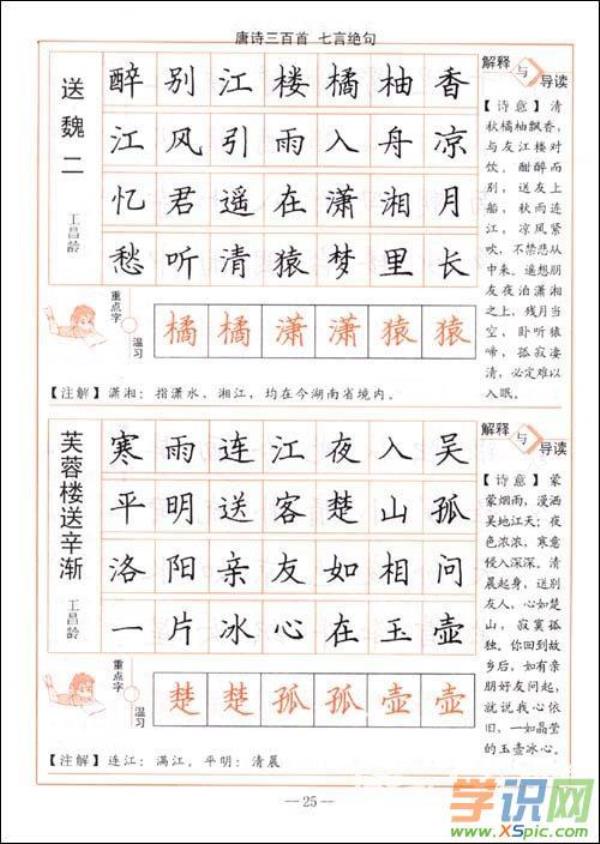 唐诗三百首 七言绝句
送魏二
王昌龄
醉别江楼橘柚香
江风引雨入舟凉
忆君遥在潇湘月
愁听清猿梦里长
解释与导读
【诗意】清
秋橘柚飘香，
与友江楼对
饮，酣醉而
别，送友上
船，秋雨连
江，凉风紧
吹，不禁悲从
中来。遥想朋
友夜泊潇湘
之上，残月当
空，卧听猿
啼，孤寂凄
清，必定难以
入眠。
重点字温习
橘橘潇潇猿猿
【注解】潇湘：指潇水、湘江，均在今湖南省境内。
芙蓉楼送辛渐
王昌龄
寒雨连江夜入吴
平明送客楚山孤
洛阳亲友如相问
一片冰心在玉壶
解释与导读
【诗意】蒙
蒙烟雨，漫洒
吴地江天；夜
色浓浓，寒意
侵入深深。清
晨起身，送别
友人，心如楚
山，寂寞孤
独。你回到故
乡后，如有亲
朋好友问起，
就说我心依
旧，一如晶莹
的玉壶冰心。
重点字温习
楚楚孤孤壶壶
【注解】连江：满江，平明：清晨
—25—
学识网
www.XSpic.com